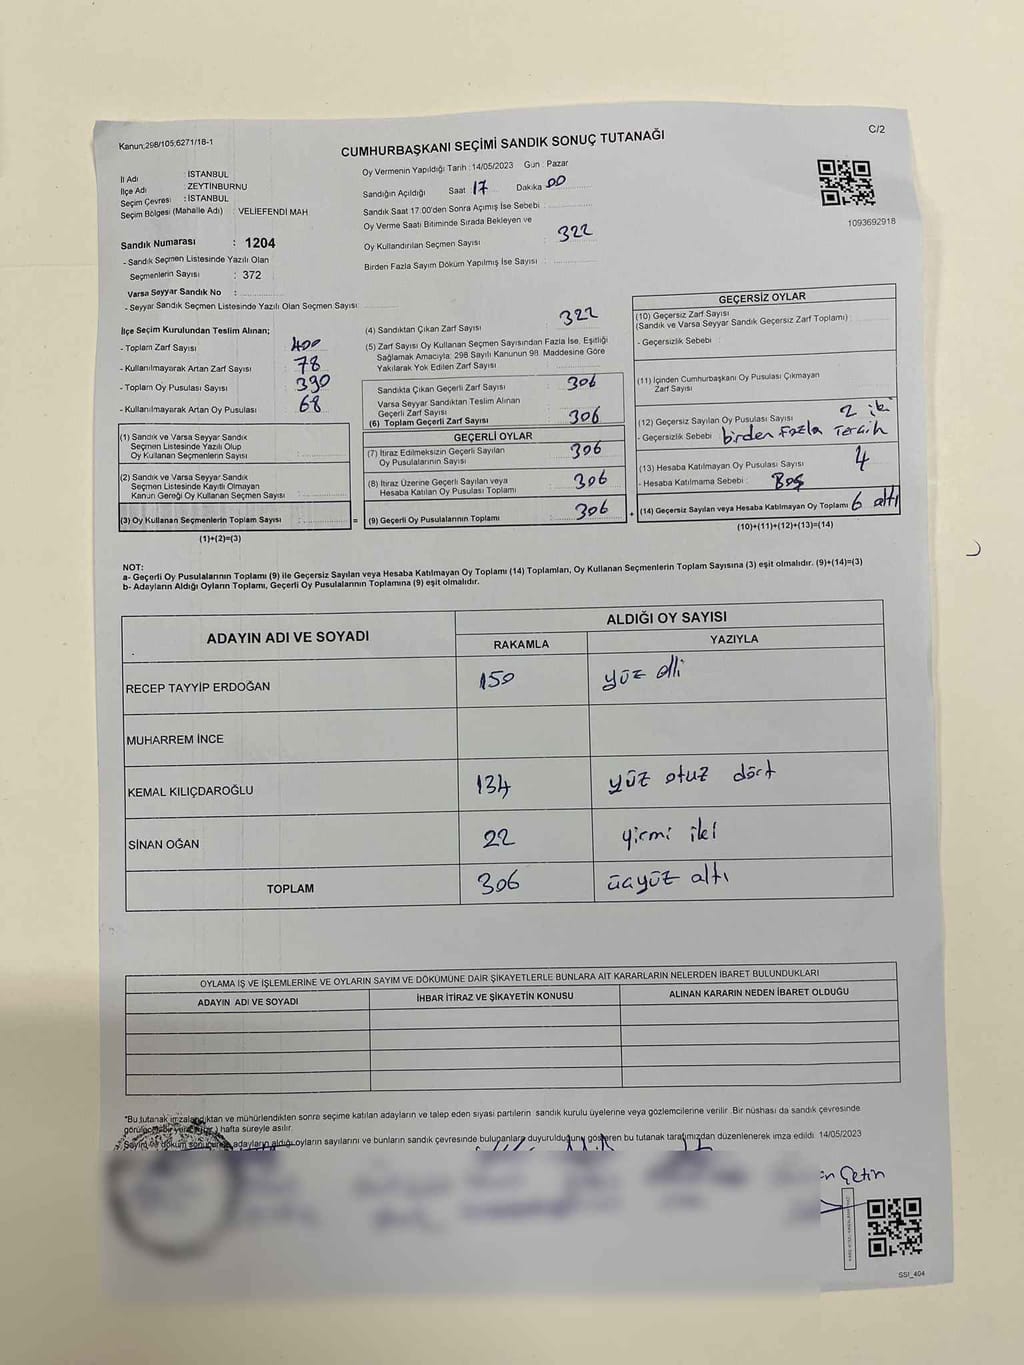 Kanun;298/105;6271/18-1
C/2
CUMHURBAŞKANI SEÇİMİ SANDIK SONUÇ TUTANAĞI
İl Adı : İSTANBUL
İlçe Adı : ZEYTİNBURNU
Seçim Çevresi : İSTANBUL
Seçim Bölgesi (Mahalle Adı) : VELİEFENDİ MAH
Sandık Numarası : 1204
- Sandık Seçmen Listesinde Yazılı Olan
Seçmenlerin Sayısı : 372
Varsa Seyyar Sandık No :
- Seyyar Sandık Seçmen Listesinde Yazılı Olan Seçmen Sayısı:
Oy Vermenin Yapıldığı Tarih : 14/05/2023 Gün : Pazar
Sandığın Açıldığı Saat 17 Dakika 00
Sandık Saat 17:00'den Sonra Açılmış İse Sebebi :
Oy Verme Saati Bitiminde Sırada Bekleyen ve
Oy Kullandırılan Seçmen Sayısı 322
Birden Fazla Sayım Döküm Yapılmış İse Sayısı :
1093692918
İlçe Seçim Kurulundan Teslim Alınan;
- Toplam Zarf Sayısı 400
- Kullanılmayarak Artan Zarf Sayısı 78
- Toplam Oy Pusulası Sayısı 390
- Kullanılmayarak Artan Oy Pusulası 68
(1) Sandık ve Varsa Seyyar Sandık
Seçmen Listesinde Yazılı Olup
Oy Kullanan Seçmenlerin Sayısı
(2) Sandık ve Varsa Seyyar Sandık
Seçmen Listesinde Kayıtlı Olmayan
Kanun Gereği Oy Kullanan Seçmen Sayısı :
(3) Oy Kullanan Seçmenlerin Toplam Sayısı : =
(1)+(2)=(3)
(4) Sandıktan Çıkan Zarf Sayısı 322
(5) Zarf Sayısı Oy Kullanan Seçmen Sayısından Fazla İse, Eşitliği
Sağlamak Amacıyla; 298 Sayılı Kanunun 98. Maddesine Göre
Yakılarak Yok Edilen Zarf Sayısı
Sandıkta Çıkan Geçerli Zarf Sayısı 306
Varsa Seyyar Sandıktan Teslim Alınan
Geçerli Zarf Sayısı
(6) Toplam Geçerli Zarf Sayısı 306
GEÇERLİ OYLAR
(7) İtiraz Edilmeksizin Geçerli Sayılan
Oy Pusulalarının Sayısı 306
(8) İtiraz Üzerine Geçerli Sayılan veya
Hesaba Katılan Oy Pusulası Toplamı 306
(9) Geçerli Oy Pusulalarının Toplamı 306 +
GEÇERSİZ OYLAR
(10) Geçersiz Zarf Sayısı
(Sandık ve Varsa Seyyar Sandık Geçersiz Zarf Toplamı) :
- Geçersizlik Sebebi :
(11) İçinden Cumhurbaşkanı Oy Pusulası Çıkmayan
Zarf Sayısı
(12) Geçersiz Sayılan Oy Pusulası Sayısı 2 iki
- Geçersizlik Sebebi birden Fazla Tercih
(13) Hesaba Katılmayan Oy Pusulası Sayısı 4
- Hesaba Katılmama Sebebi : Boş
(14) Geçersiz Sayılan veya Hesaba Katılmayan Oy Toplamı 6 altı
(10)+(11)+(12)+(13)=(14)
NOT:
a- Geçerli Oy Pusulalarının Toplamı (9) ile Geçersiz Sayılan veya Hesaba Katılmayan Oy Toplamı (14) Toplamları, Oy Kullanan Seçmenlerin Toplam Sayısına (3) eşit olmalıdır. (9)+(14)=(3)
b- Adayların Aldığı Oyların Toplamı, Geçerli Oy Pusulalarının Toplamına (9) eşit olmalıdır.
ADAYIN ADI VE SOYADI
ALDIĞI OY SAYISI
RAKAMLA YAZIYLA
RECEP TAYYİP ERDOĞAN 150 yüz elli
MUHARREM İNCE
KEMAL KILIÇDAROĞLU 134 yüz otuz dört
SİNAN OĞAN 22 yirmi iki
TOPLAM 306 üçyüz altı
OYLAMA İŞ VE İŞLEMLERİNE VE OYLARIN SAYIM VE DÖKÜMÜNE DAİR ŞİKAYETLERLE BUNLARA AİT KARARLARIN NELERDEN İBARET BULUNDUKLARI
ADAYIN ADI VE SOYADI İHBAR İTİRAZ VE ŞİKAYETİN KONUSU ALINAN KARARIN NEDEN İBARET OLDUĞU
*Bu tutanak imzalandıktan ve mühürlendikten sonra seçime katılan adayların ve talep eden siyasi partilerin sandık kurulu üyelerine veya gözlemcilerine verilir. Bir nüshası da sandık çevresinde
görülecek bir yere hafta süreyle asılır.
Sayım ve döküm sonucunda adayların aldığı oyların sayılarını ve bunların sandık çevresinde bulunanlara duyurulduğunu gösteren bu tutanak tarafımızdan düzenlenerek imza edildi. 14/05/2023
Çetin
SSI_404